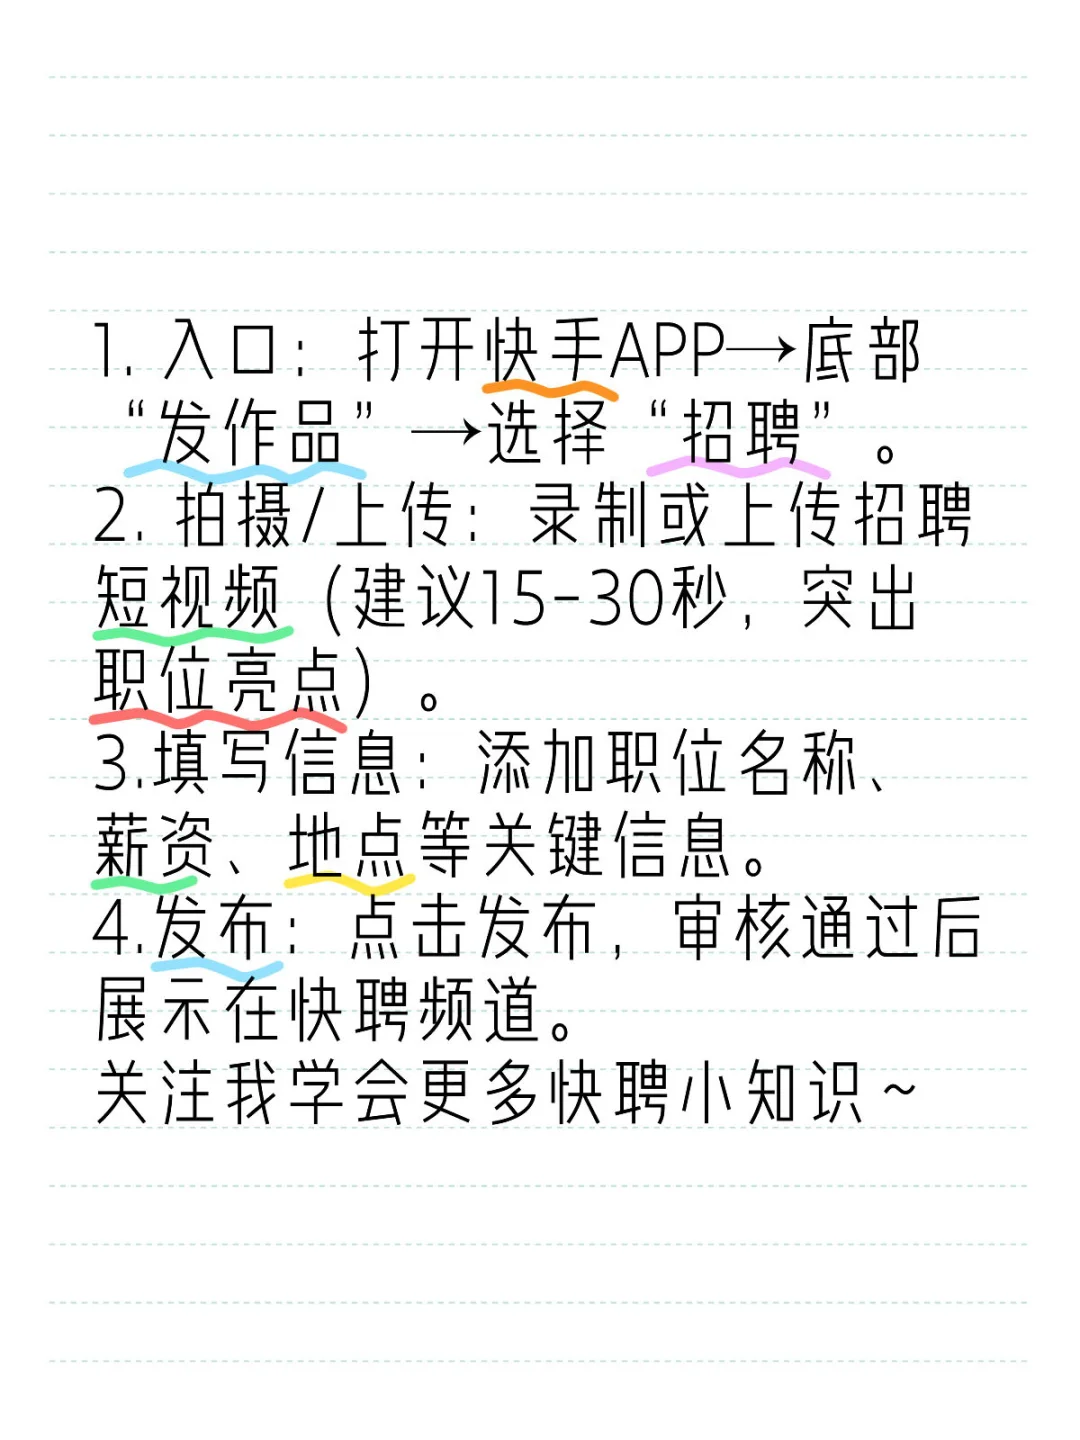 1. 入口：打开快手APP→底部
“发作品”→选择“招聘”。
2. 拍摄/上传：录制或上传招聘
短视频（建议15-30秒，突出
职位亮点）。
3.填写信息：添加职位名称、
薪资、地点等关键信息。
4.发布：点击发布，审核通过后
展示在快聘频道。
关注我学会更多快聘小知识～